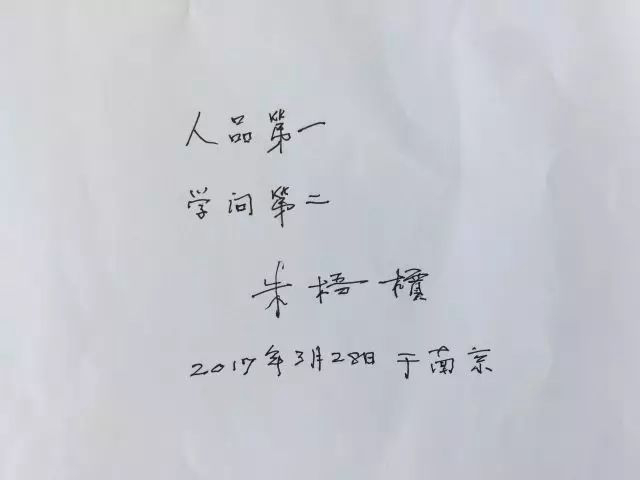 人品第一
学问第二
朱梧槚
2017年3月28日于南京